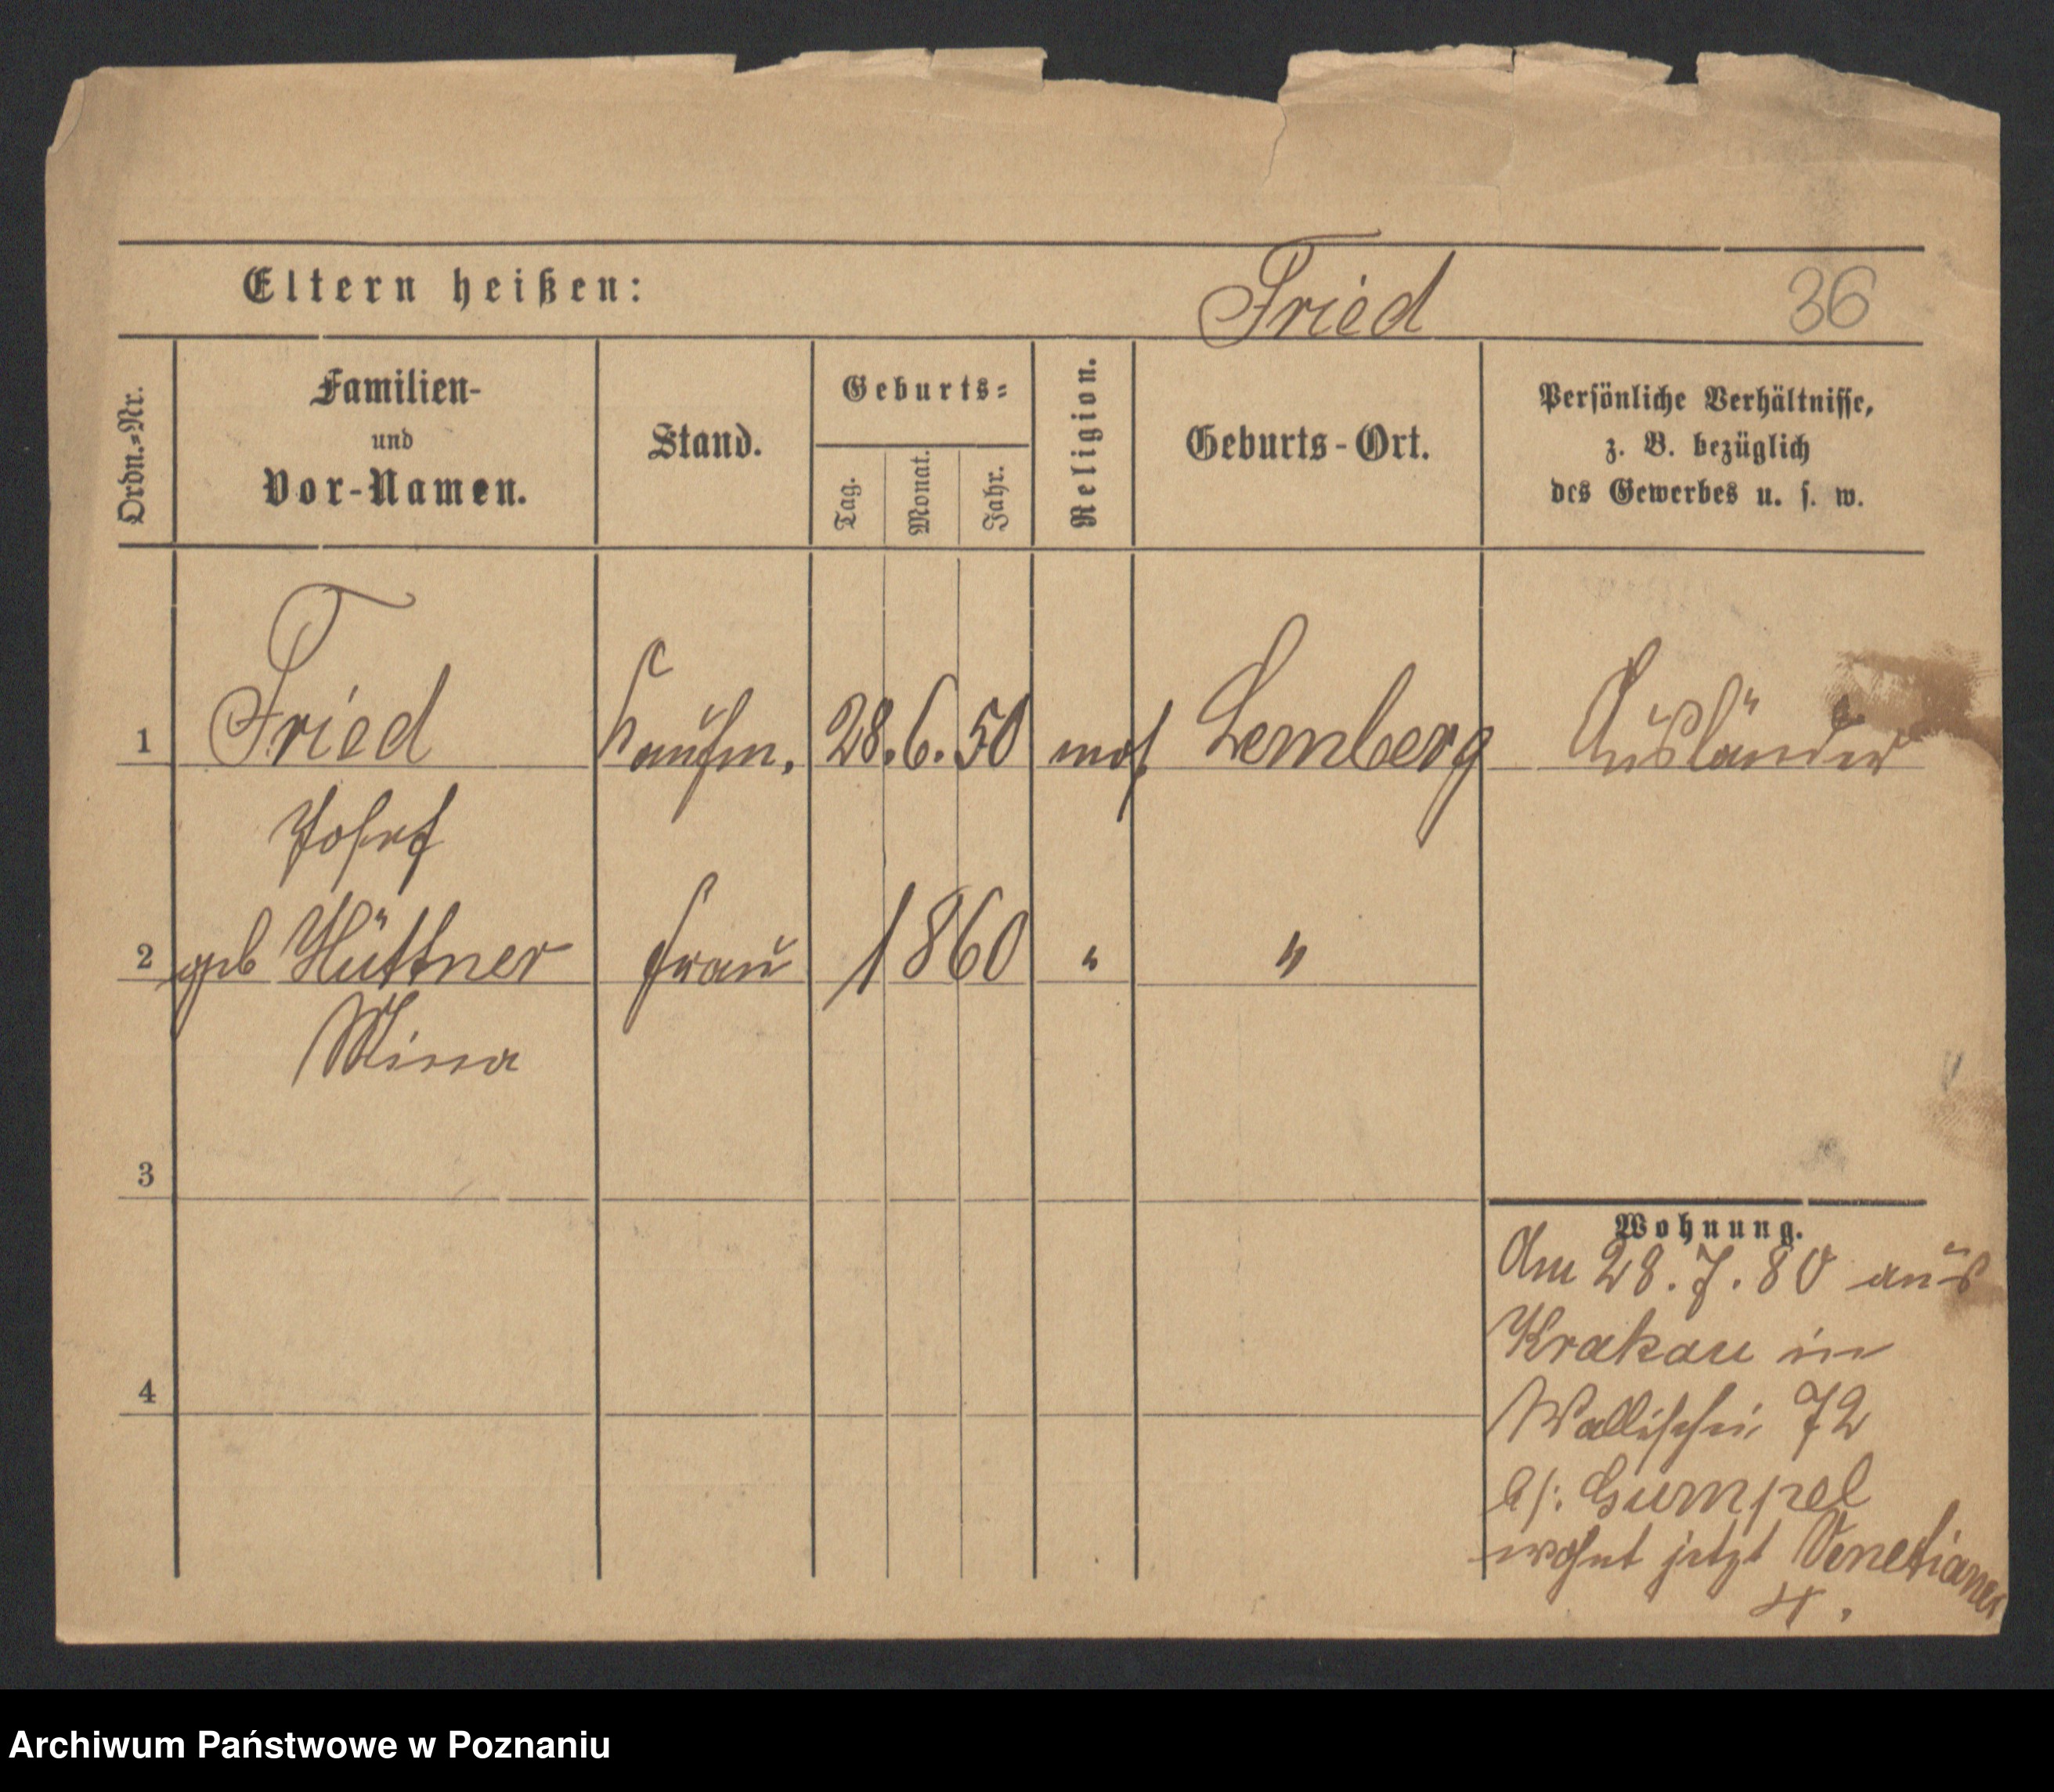 Eltern heißen: Fried 36
Ordn.-Nr.
Familien-
und
Vor-Namen.
Stand.
Geburts-
Tag.
Monat.
Jahr.
Religion.
Geburts-Ort.
Persönliche Verhältnisse,
z. B. bezüglich
des Gewerbes u. s. w.
1 Fried Kaufm. 28. 6. 50 mos. Lemberg Ausländer
Josef
2 geb Hüttner Frau 1860 " "
Mina
3
4
Wohnung.
Am 28. 7. 80 aus
Krakau in
Wallischei 72
b/: Gumpel
wohnt jetzt Venetianer
4.
Archiwum Państwowe w Poznaniu